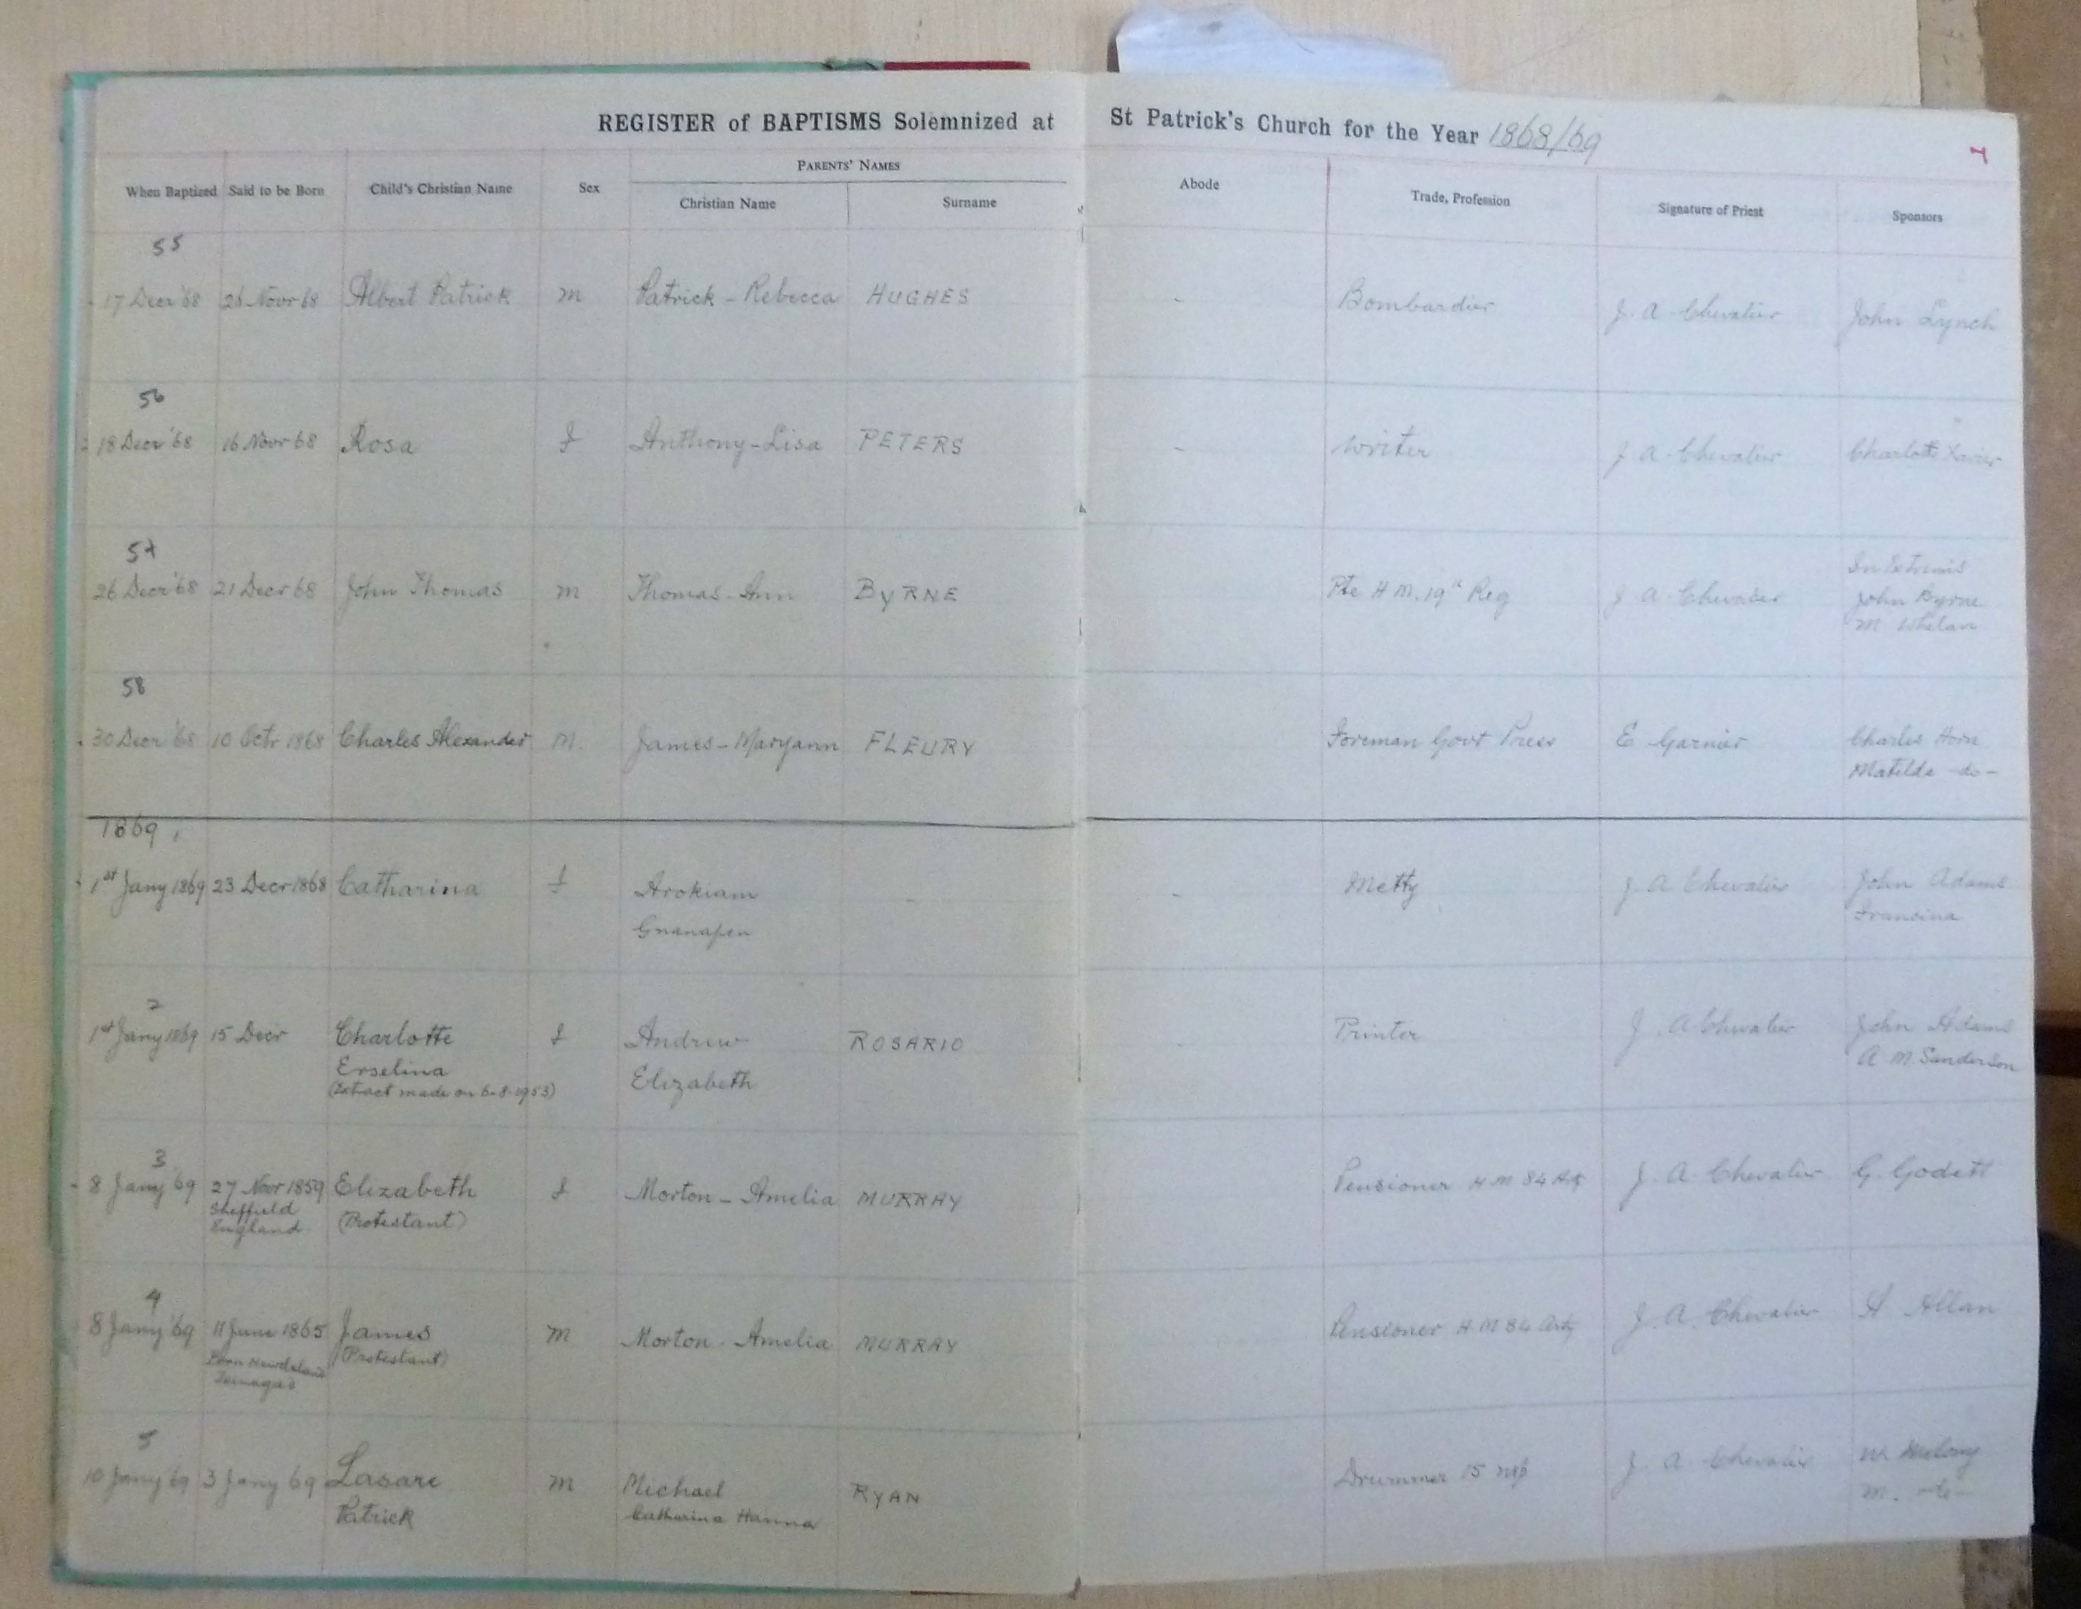 REGISTER of BAPTISMS Solemnized at St Patrick's Church for the Year 1868/69
7
When Baptized Said to be Born Child's Christian Name Sex PARENTS' NAMES Christian Name Surname Abode Trade, Profession Signature of Priest Sponsors
55
17 Decr '68 26 Novr 68 Albert Patrick m Patrick - Rebecca HUGHES - Bombardier J. A. Chevalier John Lynch
56
18 Decr '68 16 Novr 68 Rosa f Anthony - Lisa PETERS - Writer J A Chevalier Charlotte Xavier
57
26 Decr '68 21 Decr 68 John Thomas m Thomas - Ann BYRNE Pte H M. 19th Reg J A Chevalier In Extremis
John Byrne
M Whelan
58
30 Decr '68 10 Octr 1868 Charles Alexander M. James - Maryann FLEURY Foreman Govt Press E Garnier Charles Horn
Matilde -do-
1869
1st Jany 1869 23 Decr 1868 Catharina f Arokiam - - Metty J A Chevalier John Adams
Gnanapen Francina
2
1st Jany 1869 15 Decr Charlotte f Andrew ROSARIO - Printer J. A Chevalier John Adams
Erselina Elizabeth A M Sanderson
(Extract made on 6-8-1953)
3
8 Jany '69 27 Novr 1859 Elizabeth f Morton - Amelia MURRAY Pensioner H M 84 Arty J. A. Chevalier G. Godett
Sheffield (Protestant)
England
4
8 Jany '69 11 June 1865 James m Morton - Amelia MURRAY Pensioner H M 84 Arty J. A. Chevalier A Allan
Born (Protestant)
5
10 Jany '69 3 Jany 69 Lasare m Michael RYAN Drummer 15 J. A Chevalier W.
Patrick Catharina Hanna M. -do-